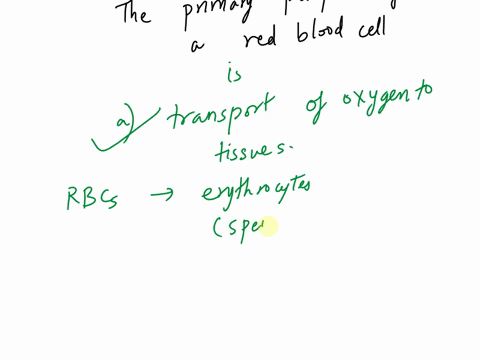 The primary
a red blood cell
is
a) transport of oxygen to
tissues.
RBCs → erythrocytes
(spe